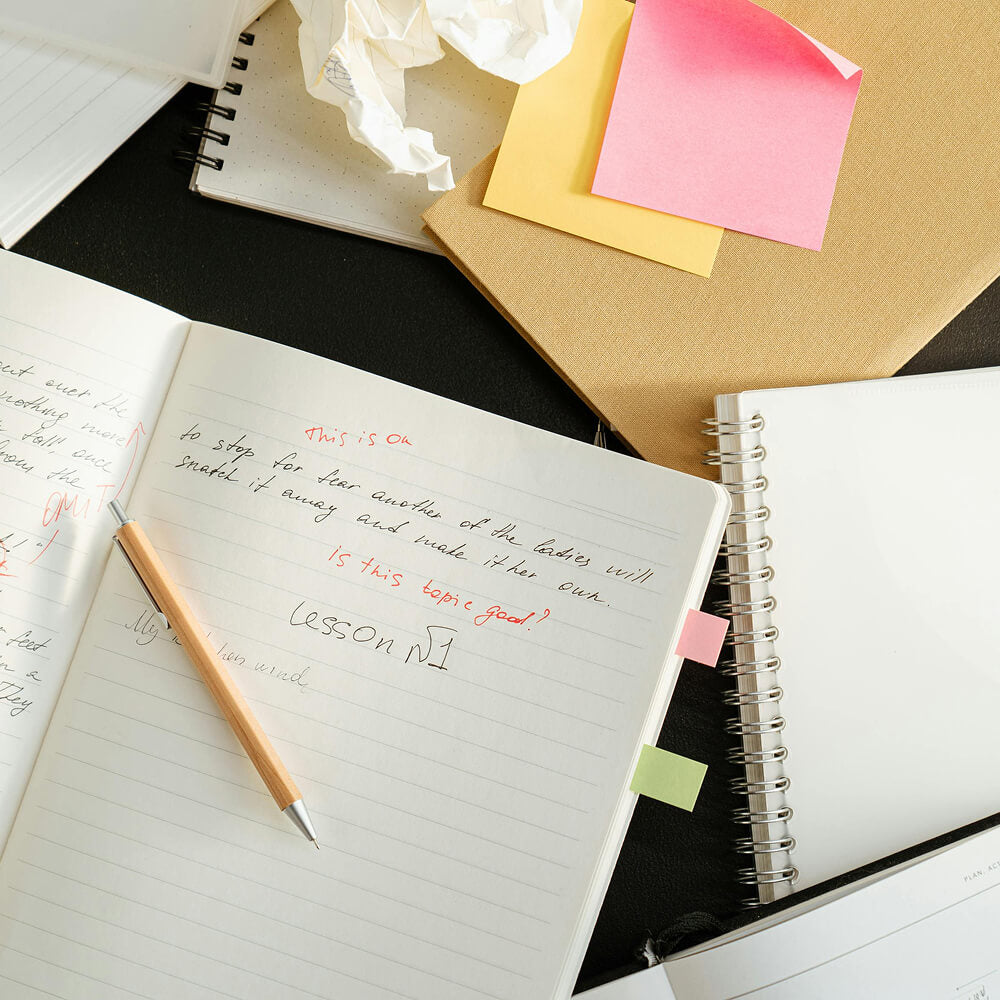 out over the
nothing more
fall", once
from the
OMIT
feet
in a
They
This is OK
to stop for fear another of the ladies will
snatch it away and make it her own.
is this topic good?
Lesson №1
My
when wind
PLAN, AC